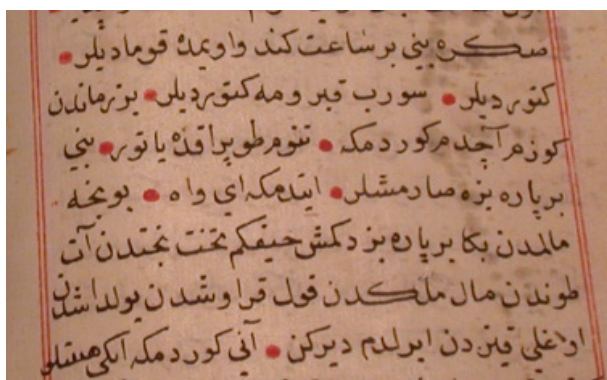 صكره بني بر ساعت كند و اويمده قوماديلر
كتورديلر سورب قبرومه كتورديلر بر زماندن
كوزم آچدم كوردمكه تنوم طوپراقده ياتور بني
بر پاره بزه صارمشلر ايتدمكه اي واه بو نجه
مالمدن بكا بر پاره بز دكمش حيفكم تخت بختدن آت
طوندن مال ملكدن قول قراوشدن يولداشدن
اوغلي قيزدن ايرلدم ديركن آني كوردمكه ايكي